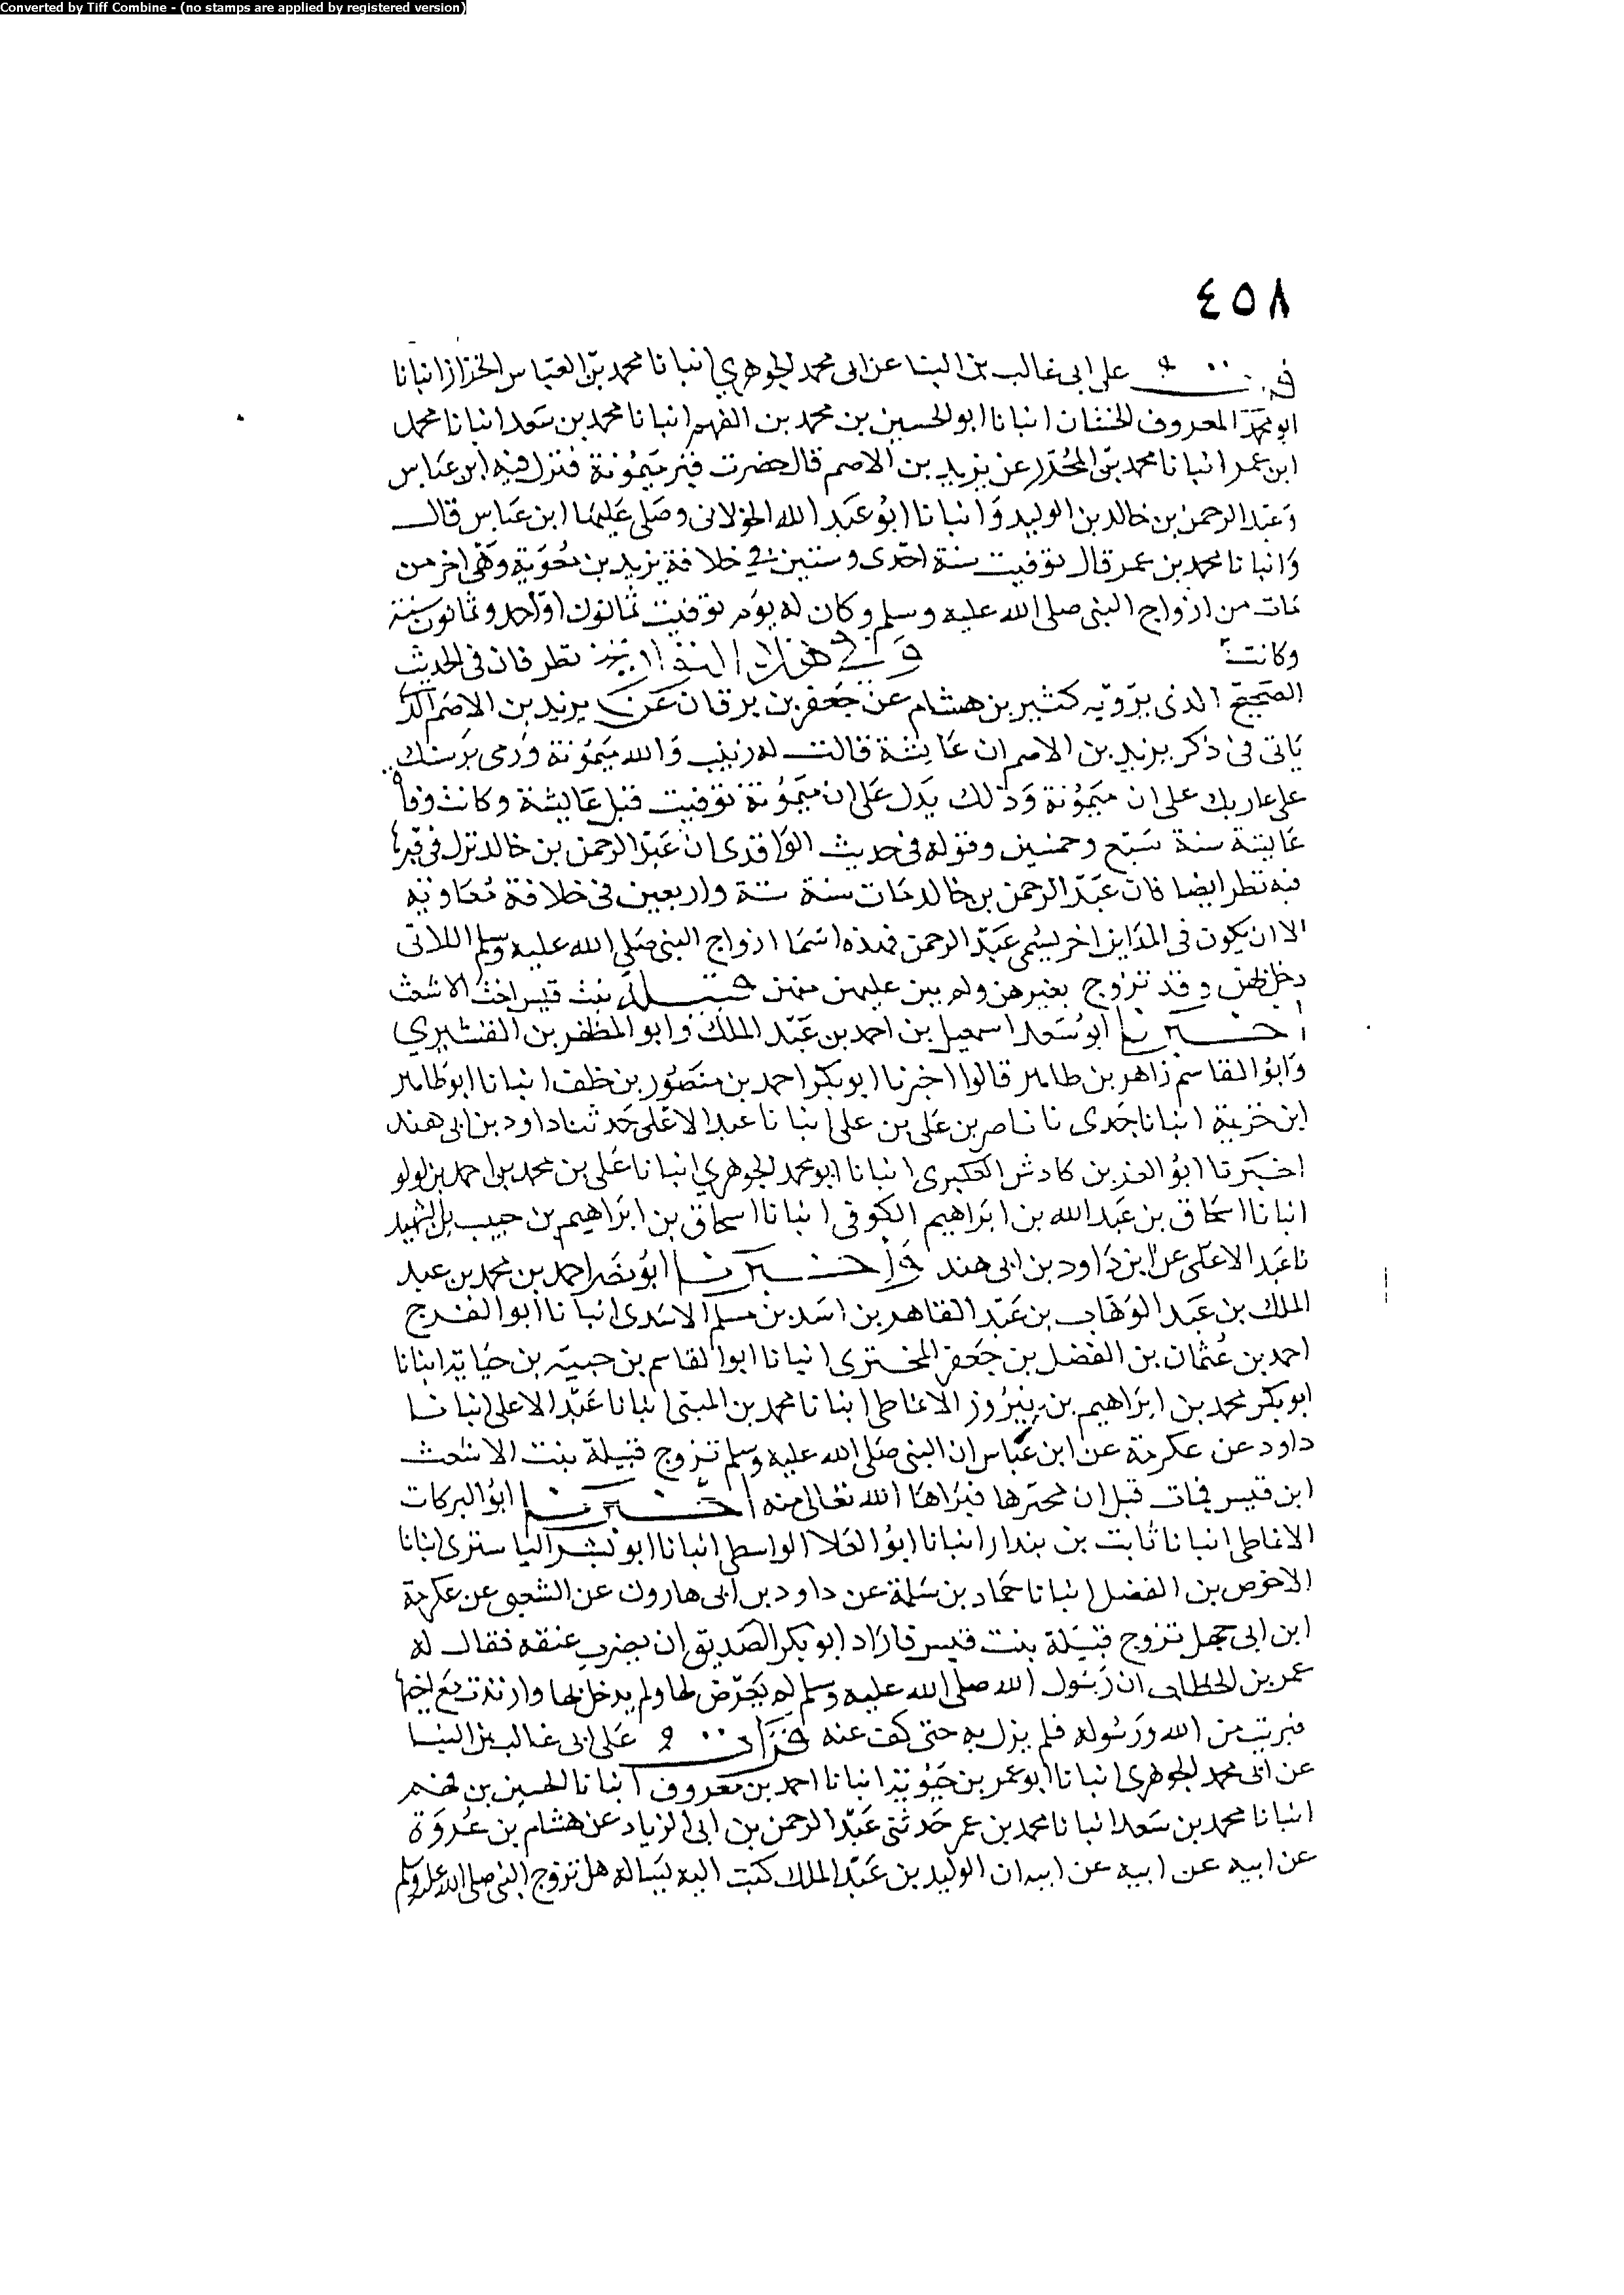 Converted by Tiff Combine - (no stamps are applied by registered version)
٤٥٨
قرات على ابى غالب بن البنا عن ابى محمد الجوهري انبانا محمد بن العباس الخزاز انبانا
ابو محمد المعروف الخشان انبانا ابو الحسين بن محمد بن الفهم انبانا محمد بن سعد انبانا محمد
ابن عمر انبانا محمد بن المحرر عن يزيد بن الاصم قال حضرت قبر ميمونة فنزل فيه ابن عباس
وعبد الرحمن بن خالد بن الوليد وانبانا ابو عبد الله الخولانى وصلى عليها ابن عباس قال
وانبانا محمد بن عمر قال توفيت سنة احدى وستين في خلافة يزيد بن معوية وهى اخر من
مات من ازواج النبى صلى الله عليه وسلم وكان له يوم توفيت ثمانون او احد وثمانون سنة
وكانت وفي هذا نظر فان فى الحديث
الصحيح الذى يرويه كثير بن هشام عن جعفر بن برقان عن يزيد بن الاصم الذى
ياتى فى ذكر يزيد بن الاصم ان عايشة قالت له زنيب والله ميمونة ورمى برسنك
على غاربك على ان ميمونة وذلك يدل على ان ميمونة توفيت قبل عايشة وكانت وفاة
عايشة سنة سبع وخمسين وقوله فى حديث الواقدى ان عبد الرحمن بن خالد نزل فى قبرها
فيه نظر ايضا فان عبد الرحمن بن خالد مات سنة ستة واربعين فى خلافة معاوية
الا ان يكون فى المداين اخر يسمى عبد الرحمن فهذه اسما ازواج النبى صلى الله عليه وسلم اللاتى
دخل بهن وقد تزوج بغيرهن ولم يبن عليهن منهن قتيلة بنت قيس اخت الاشعث
اخبرنا ابو سعد اسمعيل بن احمد بن عبد الملك وابو المظفر بن القشيري
وابو القاسم زاهر بن طاهر قالوا اخبرنا ابو بكر احمد بن منصور بن خلف انبانا ابو طاهر
ابن خزيمة انبانا جدى نا ناصر بن على بن على انبانا عبد الاعلى حدثنا داود بن ابى هند
اخبرنا ابو العز بن كادش العكبرى انبانا ابو محمد الجوهري انبانا على بن محمد بن احمد بن لولو
انبانا اسحاق بن عبد الله بن ابراهيم الكوفى انبانا اسحاق بن ابراهيم بن حبيب بن الشهيد
نا عبد الاعلى عن ابن داود بن ابى هند واخبرنا ابو نصر احمد بن محمد بن عبد
الملك بن عبد الوهاب بن عبد القاهر بن اسد بن مسلم الاسدى انبانا ابو الفرج
احمد بن عثمان بن الفضل بن جعفر المخترى انبانا ابو القاسم بن حبيبة بن حبابة انبانا
ابو بكر محمد بن ابراهيم بن نيروز الانماطى انبانا محمد بن المثنى انبانا عبد الاعلى انبانا
داود عن عكرمة عن ابن عباس ان النبى صلى الله عليه وسلم تزوج قتيلة بنت الاشعث
ابن قيس فمات قبل ان يخيرها فبراها الله تعالى منه اخبرنا ابو البركات
الانماطى انبانا ثابت بن بندار انبانا ابو العلا الواسطى انبانا ابو بشر الباسترى انبانا
الاحوص بن الفضل انبانا حماد بن سلمة عن داود بن ابى هارون عن الشعبى عن عكرمة
ابن ابى جهل تزوج قتيلة بنت قيس فاراد ابو بكر الصديق ان يضرب عنقه فقال له
عمر بن الخطاب ان رسول الله صلى الله عليه وسلم لم يعرض لها ولم يدخل بها وارتدت مع اخيها
فبريت من الله ورسوله فلم يزل به حتى كف عنه قرات على ابى غالب بن البنا
عن ابى محمد الجوهرى انبانا ابو عمر بن حيوية انبانا احمد بن معروف انبانا الحسين بن فهم
انبانا محمد بن سعد انبانا محمد بن عمر حدثنى عبد الرحمن بن ابى الزياد عن هشام بن عروة
عن ابيه عن ابيه عن ابيه ان الوليد بن عبد الملك كتب اليه يساله هل تزوج النبى صلى الله عليه وسلم